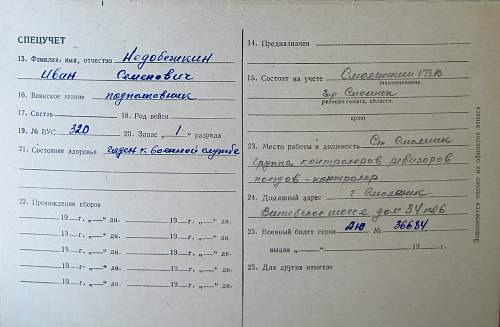 СПЕЦУЧЕТ
13. Фамилия, имя, отчество Недобежкин
Иван Семенович
16. Воинское звание подполковник
17. Состав 18. Род войск
19. № ВУС 320 20. Запас „1“ разряда
21. Состояние здоровья годен к военной службе
22. Прохождение сборов
19 г. „ “ дн. 19 г. „ “ дн.
19 г. „ “ дн. 19 г. „ “ дн.
19 г. „ “ дн. 19 г. „ “ дн.
19 г. „ “ дн. 19 г. „ “ дн.
19 г. „ “ дн. 19 г. „ “ дн.
14. Предназначен
15. Состоит на учете Смоленский ГВК
(наименование
гор Смоленск
райвоенкомата, области,
края)
23. Место работы и должность Ст Смоленск
группа контролеров ревизоров
поездов - контролер
24. Домашний адрес г. Смоленск
Витебское шоссе дом 34 кв 6
25. Военный билет серия № 36684
выдан „ “ 19 г.
25. Для других отметок
Заполняется только на офицеров запаса